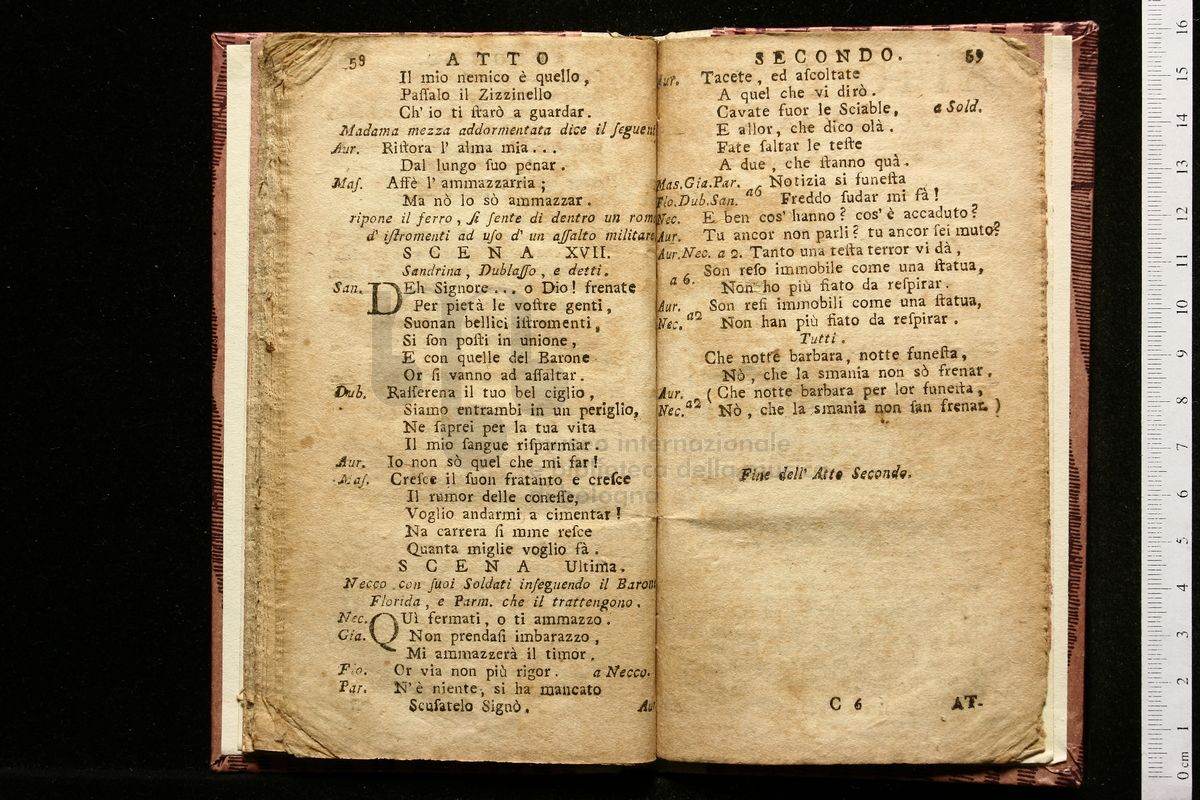 59 ATTO
Il mio nemico è quello,
Paſſalo il Zizzinello
Ch' io ti ſtarò a guardar.
Madama mezza addormentata dice il
Aur. Riſtora l' alma mia...
Dal lungo ſuo penar.
Maſ. Affè l' ammazzarria;
Ma nò lo sò ammazzar.
ripone il ferro, ſi ſente di dentro un
d' iſtromenti ad uſo d' un aſſalto militare
SCENA XVII.
Sandrina, Dublaſſo, e detti.
San. DEh Signore... o Dio! frenate
Per pietà le voſtre genti,
Suonan bellici iſtromenti,
Si ſon poſti in unione,
E con quelle del Barone
Or ſi vanno ad aſſaltar.
Dub. Raſſerena il tuo bel ciglio,
Siamo entrambi in un periglio,
Ne ſaprei per la tua vita
Il mio ſangue riſparmiar.
Aur. Io non sò quel che mi far!
Maſ. Creſce il ſuon fratanto e creſce
Il rumor delle coneſſe,
Voglio andarmi a cimentar!
Na carrera ſi mme reſce
Quanta miglie voglio fà.
SCENA Ultima.
Necco con ſuoi Soldati inſeguendo il
Florida, e Parm. che il trattengono.
Nec. QUì fermati, o ti ammazzo.
Gia. Non prendaſi imbarazzo,
Mi ammazzerà il timor.
Flo. Or via non più rigor. a Necco.
Par. N' è niente, si ha mancato
Scuſatelo Signò.
SECONDO. 59
Aur. Tacete, ed aſcoltate
A quel che vi dirò.
Cavate fuor le Sciable, a Sold.
E allor, che dico olà.
Fate ſaltar le teſte
A due, che ſtanno quà.
Mas.Gia.Par. a6 Notizia si funeſta
Flo.Dub.San. Freddo ſudar mi fà!
Nec. E ben cos' hanno? cos' è accaduto?
Aur. Tu ancor non parli? tu ancor ſei muto?
Aur.Nec. a 2. Tanto una teſta terror vi dà,
a 6. Son reſo immobile come una ſtatua,
Non ho più fiato da reſpirar.
Aur. a2 Son reſi immobili come una ſtatua,
Nec. Non han più fiato da reſpirar.
Tutti.
Che notte barbara, notte funeſta,
Nò, che la smania non sò frenar.
Aur. a2 (Che notte barbara per lor funeſta,
Nec. Nò, che la smania non ſan frenar.)
Fine dell' Atto Secondo.
C 6 AT-
internazionale
biblioteca della
bologna
16
15
14
13
12
11
10
9
8
7
6
5
4
3
2
1
0 cm